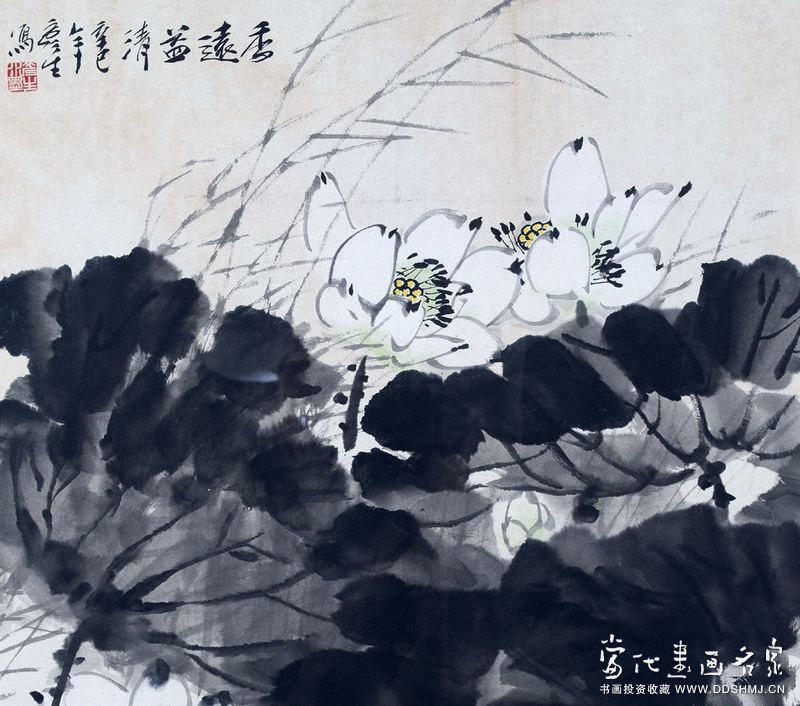 香遠益清
辛巳
年
生
寫
當代書画名家
书画投资收藏 WWW.DDSHMJ.CN